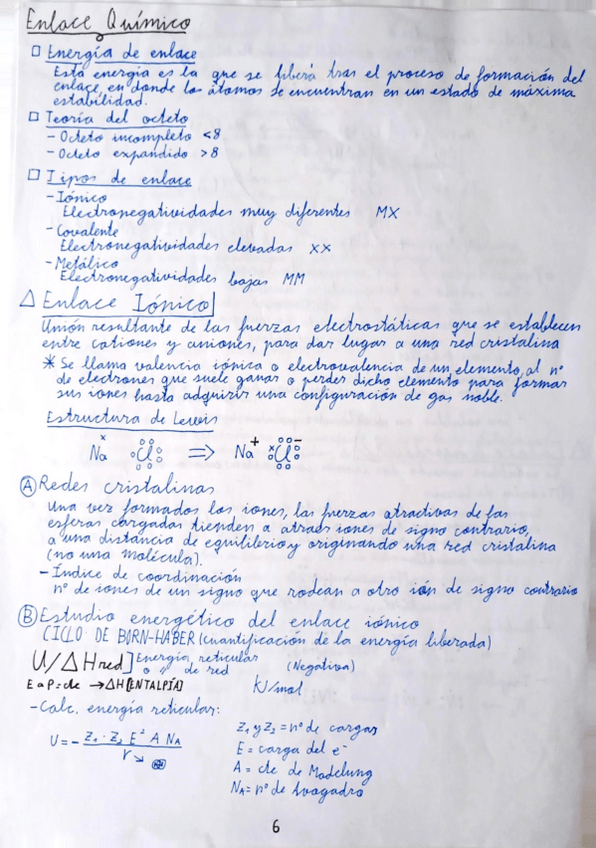 Enlace Químico
□ Energía de enlace
Esta energía es la que se libera tras el proceso de formación del
enlace, en donde los átomos se encuentran en un estado de máxima
estabilidad.
□ Teoría del octeto
- Octeto incompleto <8
- Octeto expandido >8
□ Tipos de enlace
- Iónico
Electronegatividades muy diferentes MX
- Covalente
Electronegatividades elevadas XX
- Metálico
Electronegatividades bajas MM
△ Enlace Iónico
Unión resultante de las fuerzas electrostáticas que se establecen
entre cationes y aniones, para dar lugar a una red cristalina
* Se llama valencia iónica o electrovalencia de un elemento, al nº
de electrones que suele ganar o perder dicho elemento para formar
sus iones hasta adquirir una configuración de gas noble.
Estructura de Lewis
Na Cl ⇒ Na+ Cl−
Ⓐ Redes cristalinas
Una vez formados los iones, las fuerzas atractivas de las
esferas cargadas tienden a atraer iones de signo contrario,
a una distancia de equilibrio y originando una red cristalina
(no una molécula).
- Índice de coordinación
nº de iones de un signo que rodean a otro ión de signo contrario
Ⓑ Estudio energético del enlace iónico
CICLO DE BORN-HABER (cuantificación de la energía liberada)
U/△Hred] Energía reticular o " de red (Negativa)
E a P=cte → △H [ENTALPÍA] kJ/mol
- Calc. energía reticular:
U = - Z₁ · Z₂ E² A NA / r
Z₁ y Z₂ = nº de cargas
E = carga del e⁻
A = cte de Madelung
NA = nº de Avogadro
6